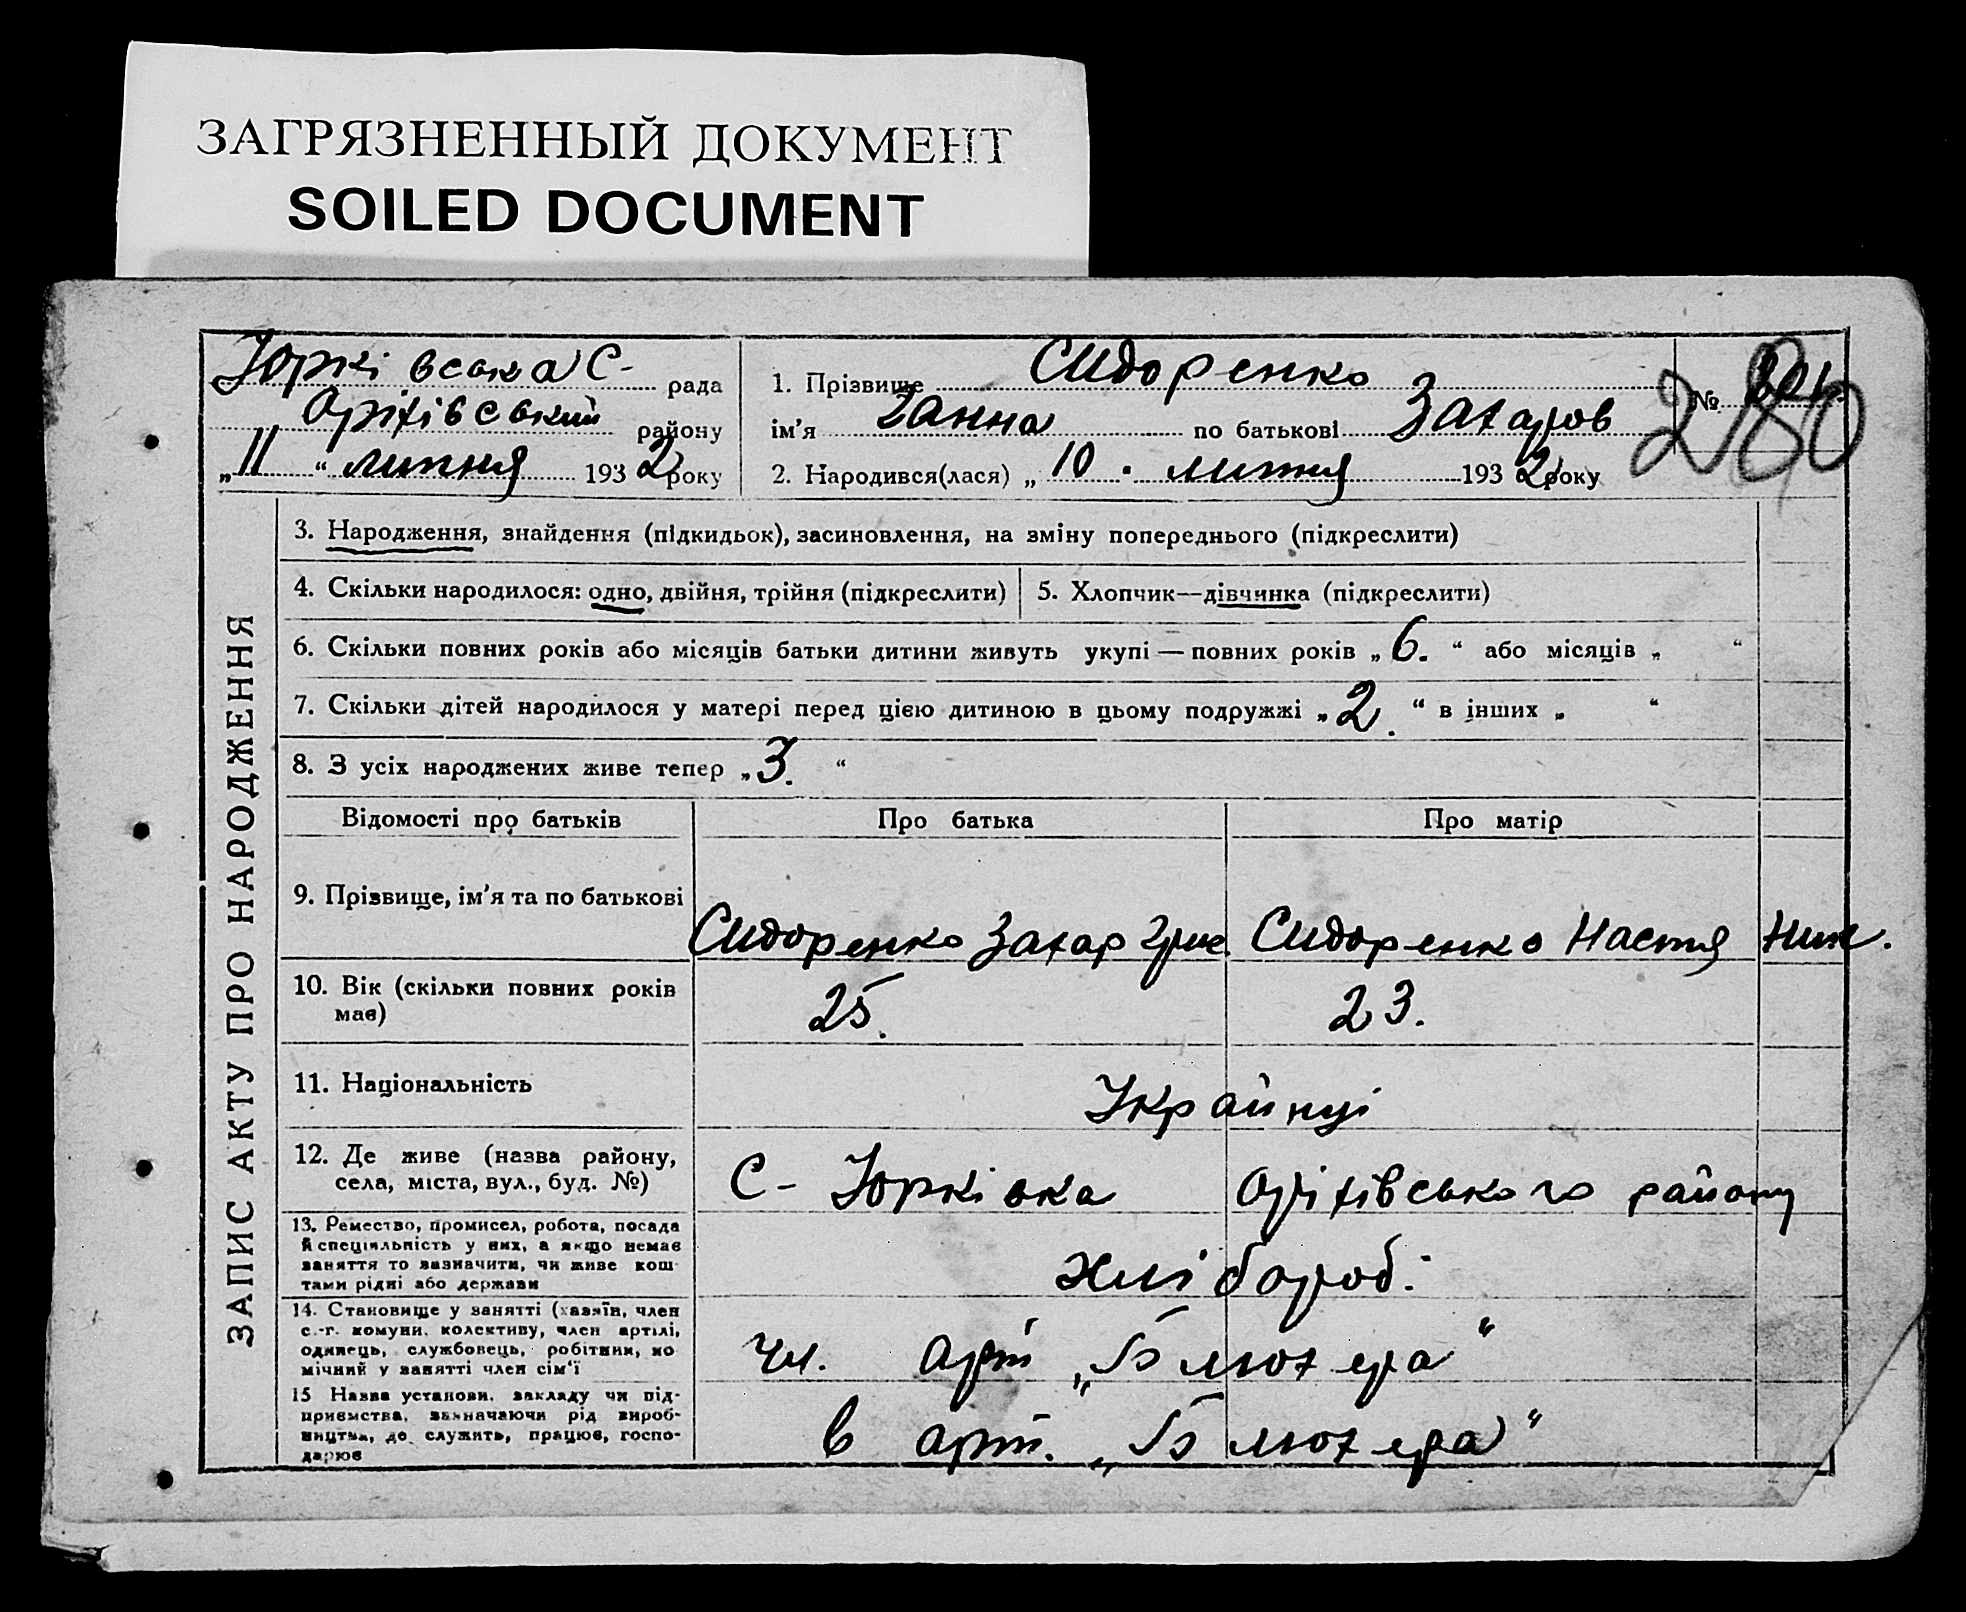 ЗАГРЯЗНЕННЫЙ ДОКУМЕНТ
SOILED DOCUMENT
Юрківська С- рада
Оріхівський району
„11“ липня 1932 року
1. Прізвище Сидоренко
ім'я Ганна по батькові Захаров
2. Народився(лася) „10. липня 1932 року
№ 280
ЗАПИС АКТУ ПРО НАРОДЖЕННЯ
3. Народження, знайдення (підкидьок), засиновлення, на зміну попереднього (підкреслити)
4. Скільки народилося: одно, двійня, трійня (підкреслити)
5. Хлопчик—дівчинка (підкреслити)
6. Скільки повних років або місяців батьки дитини живуть укупі — повних років „6.“ або місяців „ “
7. Скільки дітей народилося у матері перед цією дитиною в цьому подружжі „2.“ в інших „ “
8. З усіх народжених живе тепер „3.“
Відомості про батьків Про батька Про матір
9. Прізвище, ім'я та по батькові
Сидоренко Захар Григ. Сидоренко Настя Ник.
10. Вік (скільки повних років
має)
25. 23.
11. Національність
Українці
12. Де живе (назва району,
села, міста, вул., буд. №)
С- Юрківка Оріхівського району
13. Ремество, промисел, робота, посада
й спеціяльність у них, а якщо немає
заняття то зазначити, чи живе кош
тами рідні або держави
Хлібороб.
14. Становище у занятті (хазяїн, член
с.-г. комуни, колективу, член артілі,
одинець, службовець, робітник, по
мічний у занятті член сім'ї
чл. арт „Блюхера“
15 Назва установи, закладу чи під-
приємства, зазначаючи рід вироб-
ництва, де служить, працює, госпо-
дарює
в арт. „Блюхера“